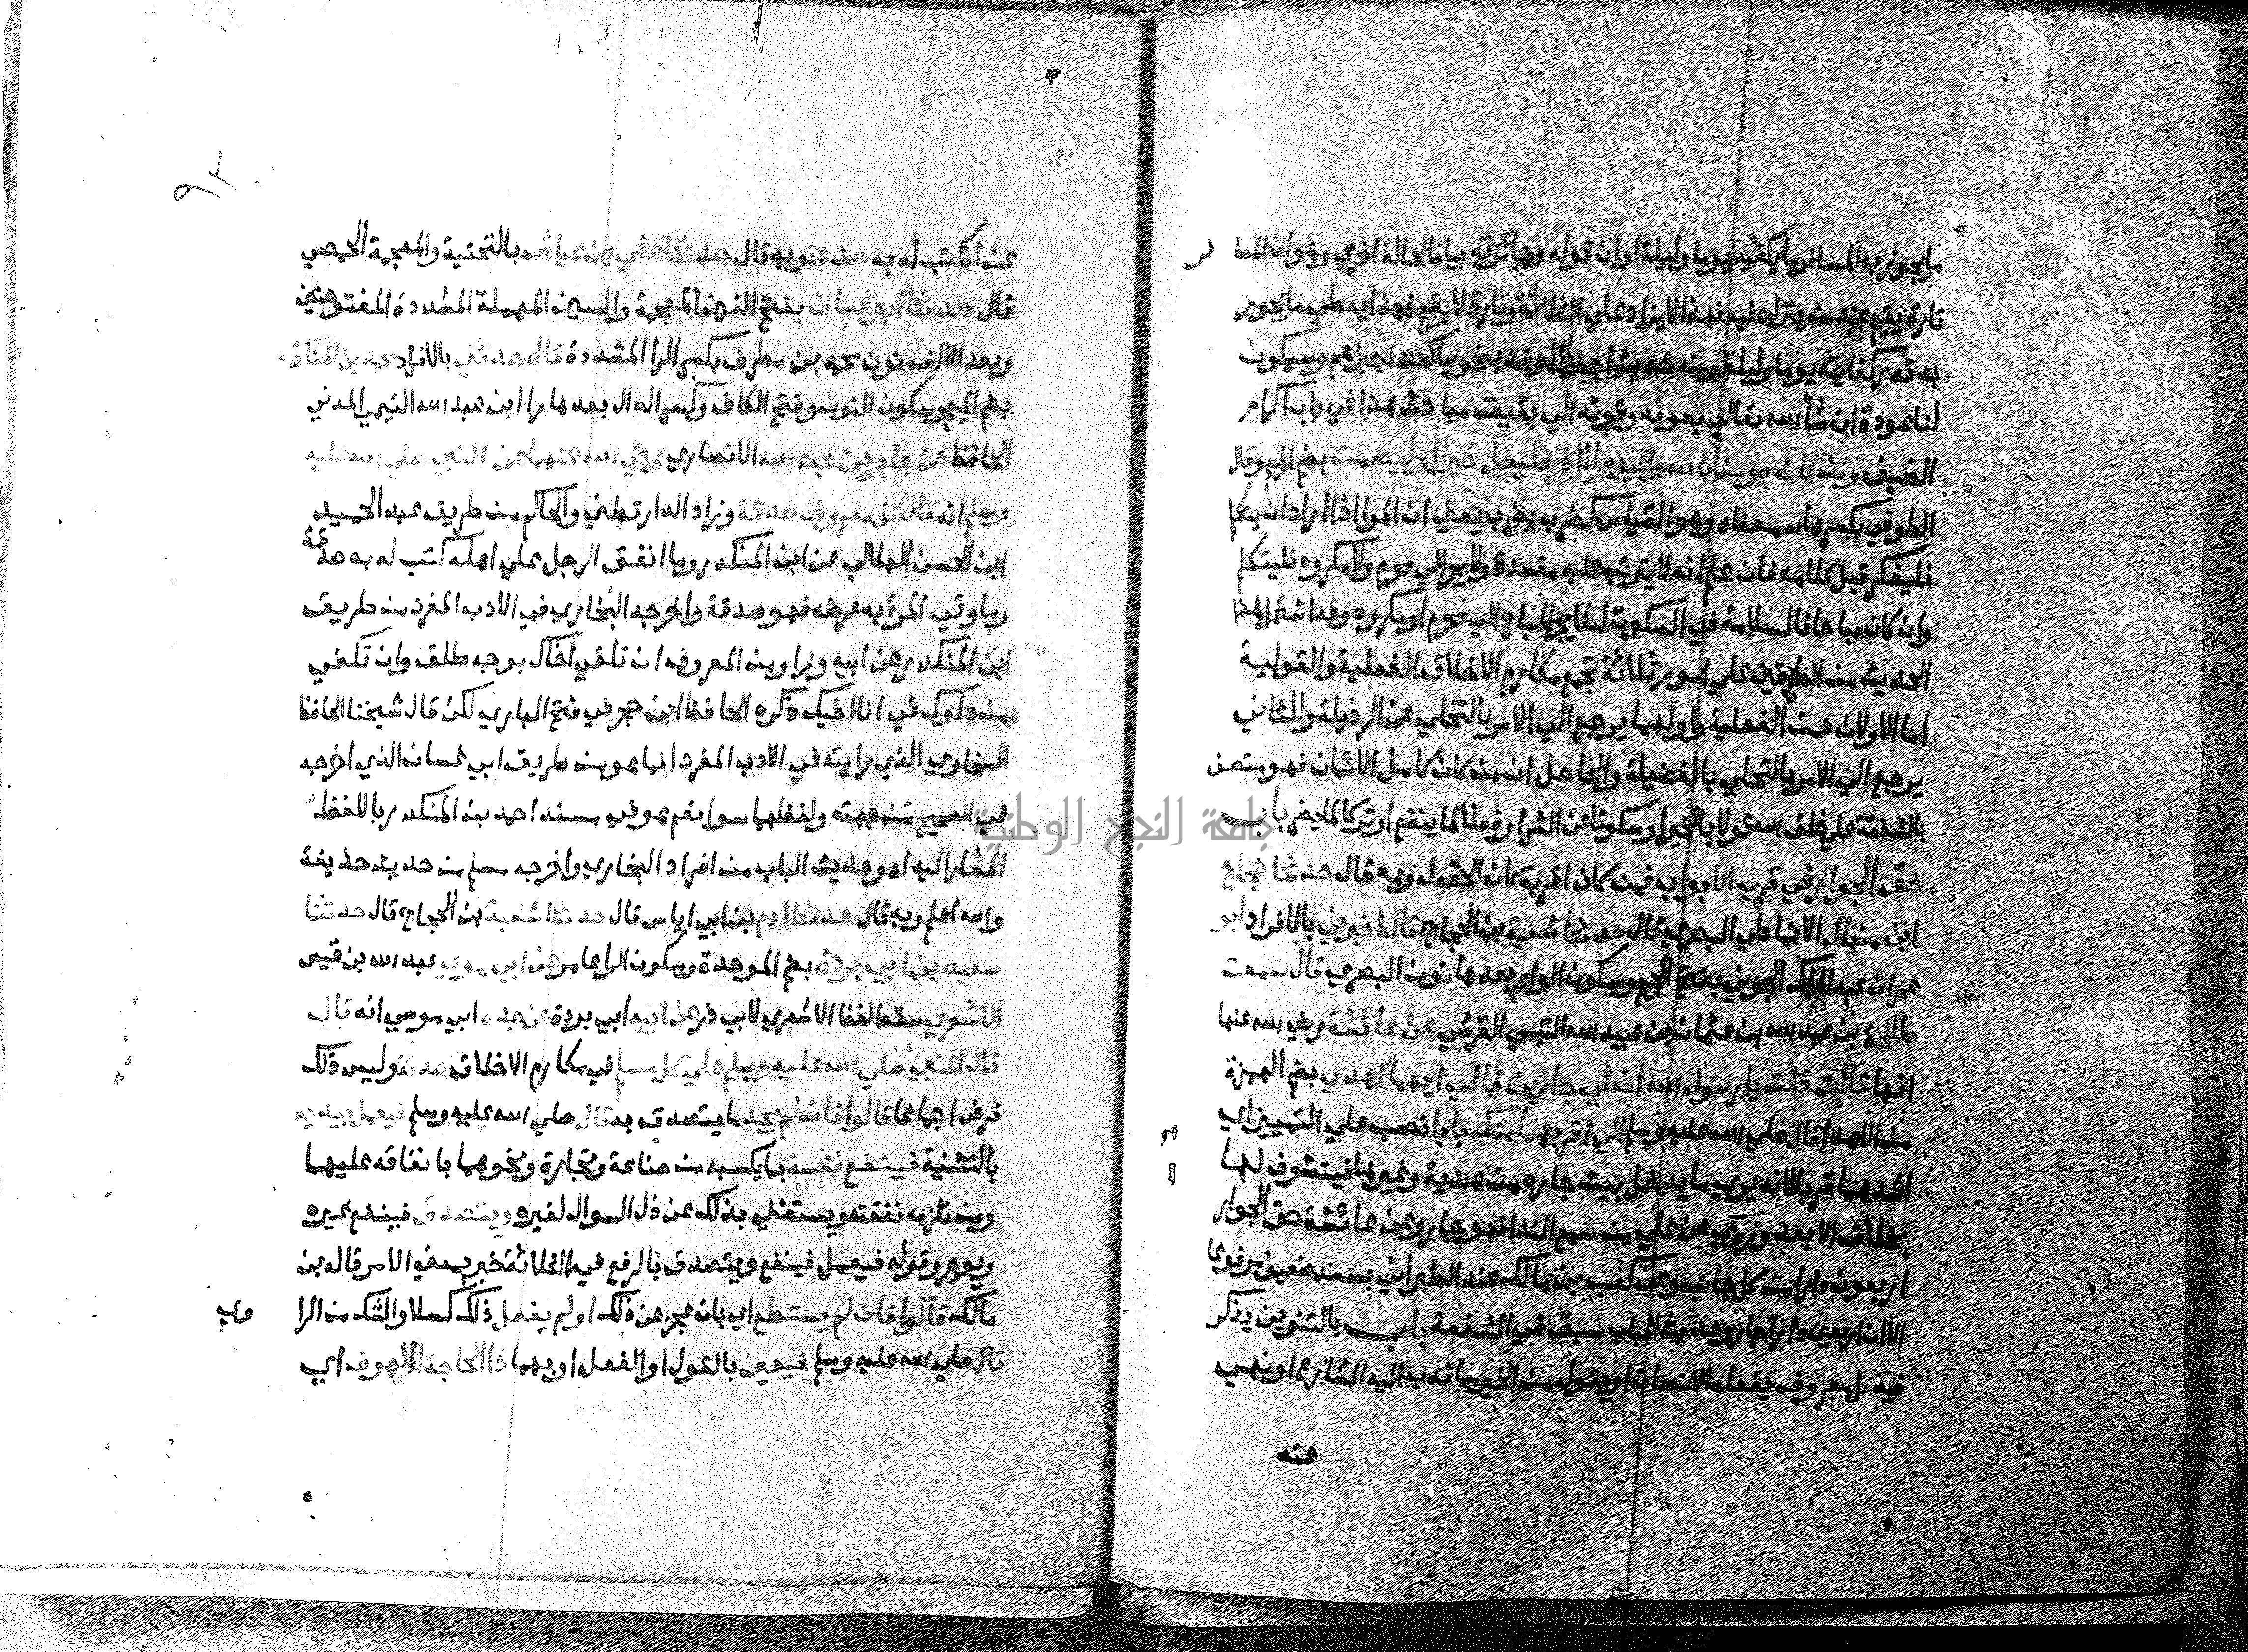 ما يجوز به المسافر ما يكفيه يوما وليلة او ان قوله وجائزته بيانا لحالة اخري وهو ان المسا فر
تارة يقيم عند من ينزل عليه فهذا لا يزاد علي الثلاثة وتارة لا يقيم فهذا يعطي ما يجوز
به قدر كفايته يوما وليلة ومنه حديث اجيزوا الوفد بنحو ما كنت اجيزهم وسيكون
لنا عودة ان شأ الله تعالي بعونه وقوته الي بقيت مباحث هذا في باب اكرام
الضيف ومن كان يومن بالله واليوم الاخر فليقل خيرا او ليصمت بضم الميم وقال
الطوفي بكسرها سمعناه وهو القياس كضرب يضرب يعني ان المرا اذا اراد ان يتكلم
فليفكر قبل كلامه فان علم انه لا يترتب عليه مفسدة ولا يجر الي محرم ولا مكروه فليتكلم
وان كان مباحا فالسلامة في السكوت ليلا يجر المباح الي محرم او مكروه وقد اشتمل هذا
الحديث من الطريقين علي امور ثلاثة تجمع مكارم الاخلاق الفعلية والقولية
اما الاولان فمن الفعلية واولهما يرجع الي الامر بالتخلي عن الرذيلة والثاني
يرجع الي الامر بالتحلي بالفضيلة والحاصل ان من كان كامل الايمان فهو متصف
بالشفقة علي خلق الله قولا بالخير او سكوتا عن الشر او فعلا لما ينفع او تركا لما يضر باب
حق الجوار في قرب الابواب فمن كان اقرب كان الحق له وبه قال حدثنا حجاج
ابن منهال الانماطي البصري قال حدثنا شعبة بن الحجاج قال اخبرني بالافراد ابو
عمران عبد الملك الجوني بفتح الجيم وسكون الواو بعدها نون البصري قال سمعت
طلحة بن عبد الله بن عثمان بن عبيد الله التيمي القرشي عن عائشة رضي الله عنها
انها قالت قلت يا رسول الله ان لي جارين فالي ايهما اهدي بضم الهمزة
من الاهدا قال صلي الله عليه وسلم الي اقربهما منك بابا نصب علي التمييز اي
اشدهما قربا لانه يري ما يدخل بيت جاره من هدية وغيرها فيتشوف لها
بخلاف الابعد وروي عن علي من سمع الندا فهو جار وعن عائشة حق الجوار
اربعون دارا من كل جانب وعن كعب بن مالك عند الطبراني بسند ضعيف مرفوعا
الا ان اربعين دارا جار وحديث الباب سبق في الشفعة باب بالتنوين يذكر
فيه كل معروف يفعله الانسان او يقوله من الخير مما ندب اليه الشارع او نهي
عنه
عنه اكتب له به صدقة وبه قال حدثنا علي بن عياش بالتحتية والمعجمة الحمصي
قال حدثنا ابو غسان بفتح الغين المعجمة والسين المهملة المشددة المفتوحتين
وبعد الالف نون محمد بن مطرف بكسر الرا المشددة قال حدثني بالافراد محمد بن المنكدر
بضم الميم وسكون النون وفتح الكاف وكسر الدال بعدها را ابن عبد الله التيمي المدني
الحافظ عن جابر بن عبد الله الانصاري رضي الله عنهما عن النبي صلي الله عليه
وسلم انه قال كل معروف صدقة وزاد الدارقطني والحاكم من طريق عبد الحميد
ابن الحسن الهلالي عن ابن المنكدر وما انفق الرجل علي اهله كتب له به صدقة
وما وقي المرأ به عرضه فهو صدقة واخرجه البخاري في الادب المفرد من طريق
ابن المنكدر عن ابيه وزاد ومن المعروف ان تلقي اخاك بوجه طلق وان تكفي
من دلوك في انا اخيك ذكره الحافظ ابن حجر في فتح الباري لكن قال شيخنا الحافظ
السخاوي الذي رايته في الادب المفرد انما هو من طريق ابي غسان الذي اخرجه
في الصحيح من جهته ولفظهما سوا نعم هو في مسند احمد بن المنكدر باللفظ
المشار اليه اه وحديث الباب من افراد البخاري واخرجه مسلم من حديث حذيفة
والله اعلم وبه قال حدثنا ادم بن ابي اياس قال حدثنا شعبة بن الحجاج قال حدثنا
سعيد بن ابي بردة بضم الموحدة وسكون الرا عامر بن ابي موسي عبد الله بن قيس
الاشعري سقط لفظ الاشعري لابي ذر عن ابيه ابي بردة عن جده ابي موسي انه قال
قال النبي صلي الله عليه وسلم علي كل مسلم في مكارم الاخلاق صدقة وليس ذلك
فرض اجماعا قالوا فان لم يجد ما يتصدق به قال صلي الله عليه وسلم فيعمل بيديه
بالتثنية فينفع نفسه بما يكسبه من صناعة وتجارة ونحوهما بانفاقه عليها
ومن تلزمه نفقته ويستغني بذلك عن ذل السوال لغيره ويتصدق فينفع غيره
ويوجر وقوله فيعمل فينفع ويتصدق بالرفع في الثلاثة خبر بمعني الامر قاله بن
مالك قالوا فان لم يستطع اي بان عجز عن ذلك او لم يفعل ذلك كسلا والشك من الرا وي
قال صلي الله عليه وسلم فيعين بالقول او الفعل او بهما ذا الحاجة الملهوف اي
جامعة النجاح الوطنية